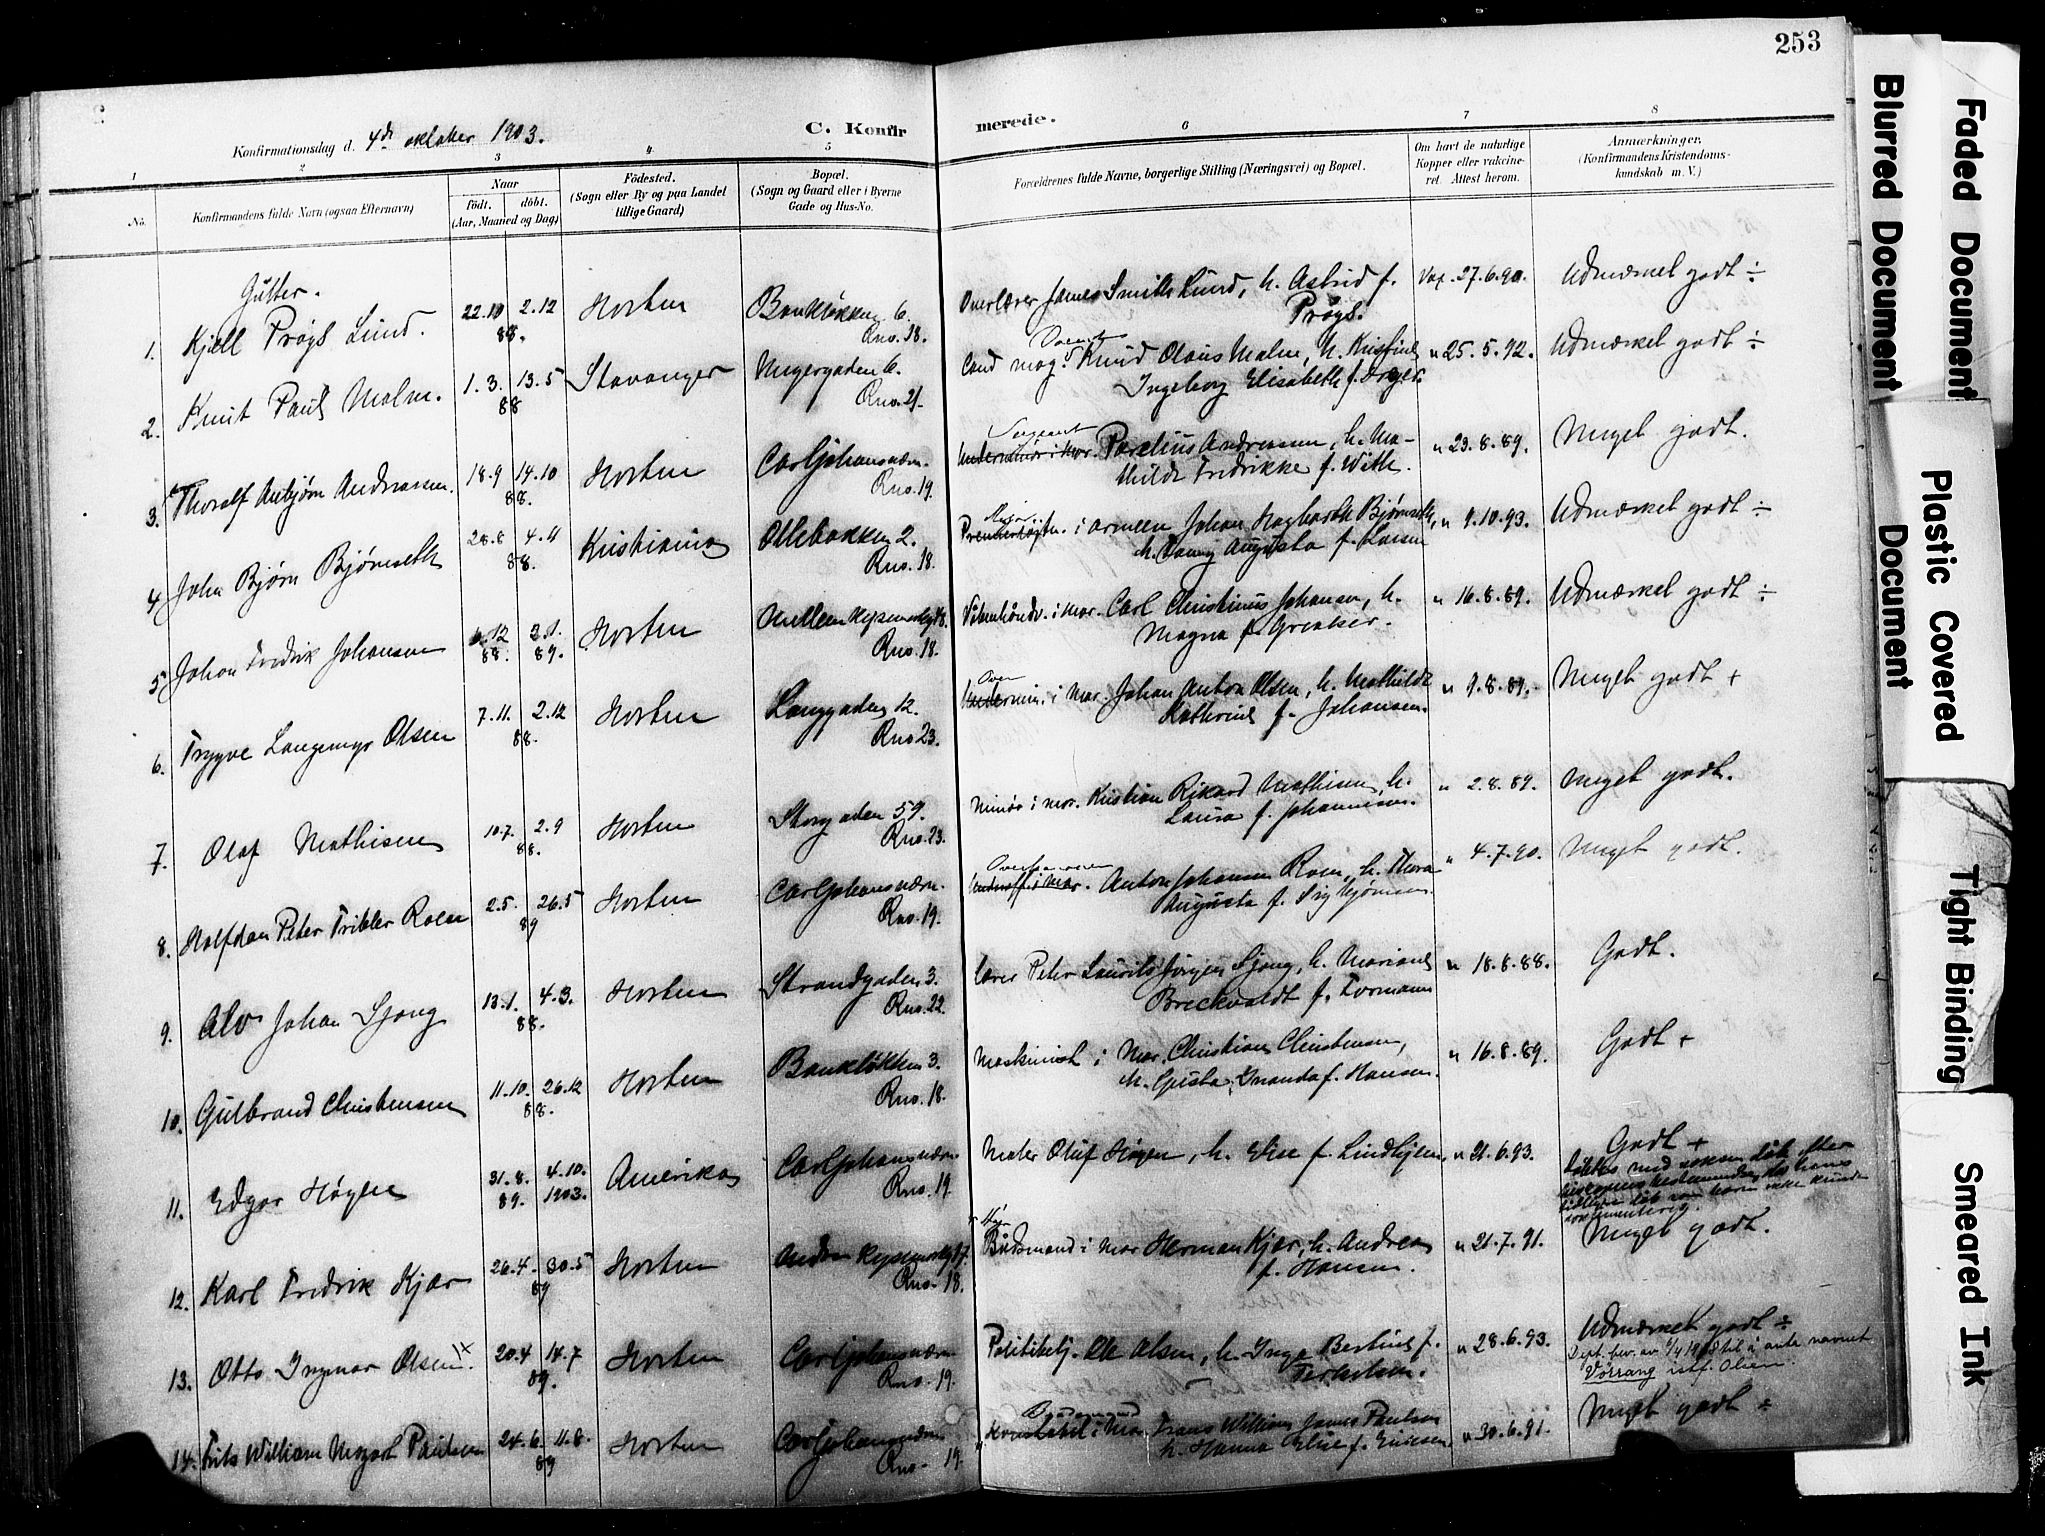 253
Konfirmationsdag d. 4de oktober 1903.
C. Konfirmerede.
1 2 3 4 5 6 7 8
No.
Konfirmandens fulde Navn (ogsaa Efternavn)
Naar
født. døbt.
(Aar, Maaned og Dag)
Fødested.
(Sogn eller By og paa Landet
tillige Gaard)
Bopæl.
(Sogn og Gaard eller i Byerne
Gade og Hus-No.
Forældrenes fulde Navne, borgerlige Stilling (Næringsvei) og Bopæl.
Om havt de naturlige
Kopper eller vakcine-
ret. Attest herom.
Anmærkninger.
(Konfirmandens Kristendoms-
kundskab m. V.)
Gutter.
1. Kjell Prøys Lund. 22.10 2.12 88. Horten Bankløkken 6. Rno. 18.
Overlærer James Smith Lund, h. Astrid f. Prøys. Vax. 27.6.90. Udmærket godt ÷
2. Knut Paul Malm. 1.3. 13.5 88 Stavanger Unigergaden 6. Rno. 21.
Cand mag. Knud Olaus Malm, h. Kristine Ingeborg Elisabeth f. " 25.5.92. Udmærket godt ÷
3. Thoralf Anbjørn Andreasen. 18.9 14.10 88. Horten Carljohansværn. Rno. 19.
Sergeant Parelius Andreasen, h. Mathilde Fredrikke f. With. " 23.8.89. Meget godt.
4 John Bjørn Bjørnseth 28.8 4.11 88. Kristiania Ollebakken 2. Rno. 18.
i armeen Johan Hagbarth Bjørnseth, h. Fanny Augusta f. Larsen " 9.10.93. Udmærket godt ÷
5 Johan Fredrik Johansen 6.12 88. 3.1. 89. Horten Rno. 18.
i mar. Carl Christinus Johansen, h. Magna f. " 16.8.89. Udmærket godt ÷
6. Trygve Langemyr Olsen 7.11. 2.12 88. Horten Langgaden 12. Rno 23.
Over i mar. Johan Anton Olsen, h. Mathilde Kathrine f. Johansen. " 9.8.89. Meget godt +
7. Olaf Mathisen 10.7. 2.9 88. Horten Storgaden 59. Rno. 23.
Minør i mar. Kristian Rikard Mathisen, h. Laura f. Johannesen. " 2.8.89. Meget godt.
8. Halfdan Peter Tribler Roen 2.5. 26.5 89 Horten Carljohansværn. Rno. 19.
i Mar. Anton Johansen Roen, h. Thora Augusta f. Sigbjørnsen. " 4.7.90. Meget godt.
9. Alv Johan Ljong 13.1. 4.3. 88. Horten Strandgaden 3. Rno. 22.
Lærer Peter Laurits Jørgen Ljong, h. Mariane Breckvaldt f. Formann " 18.8.88. Godt.
10. Gulbrand Christensen 11.10. 26.12 88. Horten Bankløkken 3. Rno. 18.
Maskinist i Mar. Christian Christensen, h. Gusta Amanda f. Hansen. " 16.8.89. Godt +
11. Edgar Høyen 31.8. 89. 4.10. 1903. Amerika Carljohansværn. Rno. 19.
Maler Oluf Høyen, h. Elise f. Lindhjem. " 21.6.93. Godt +
12. Karl Fredrik Kjær 26.4. 30.5 89 Horten Rno. 18.
Baadsmand i Mar Herman Kjær, h. Andrea f. Hansen. " 21.7.91. Meget godt.
13. Otto Ingmar Olsen. 1x 20.4 14.7 89. Horten Carljohansværn. Rno. 19.
Politibetj. Ole Olsen, h. Inga Bertine f. Terkelsen. " 28.6.93. Udmærket godt ÷
Vårrang istf. Olsen.
14. Frits William Mozart Paulsen 24.6. 11.8. 89 Horten Carljohansværn Rno. 19.
i Mar Frans William James Paulsen h. Hanna Elise f. Ericsen. " 30.6.91. Meget godt ÷
Blurred Document
Faded Document
Plastic Covered
Document
Tight Binding
Smeared Ink